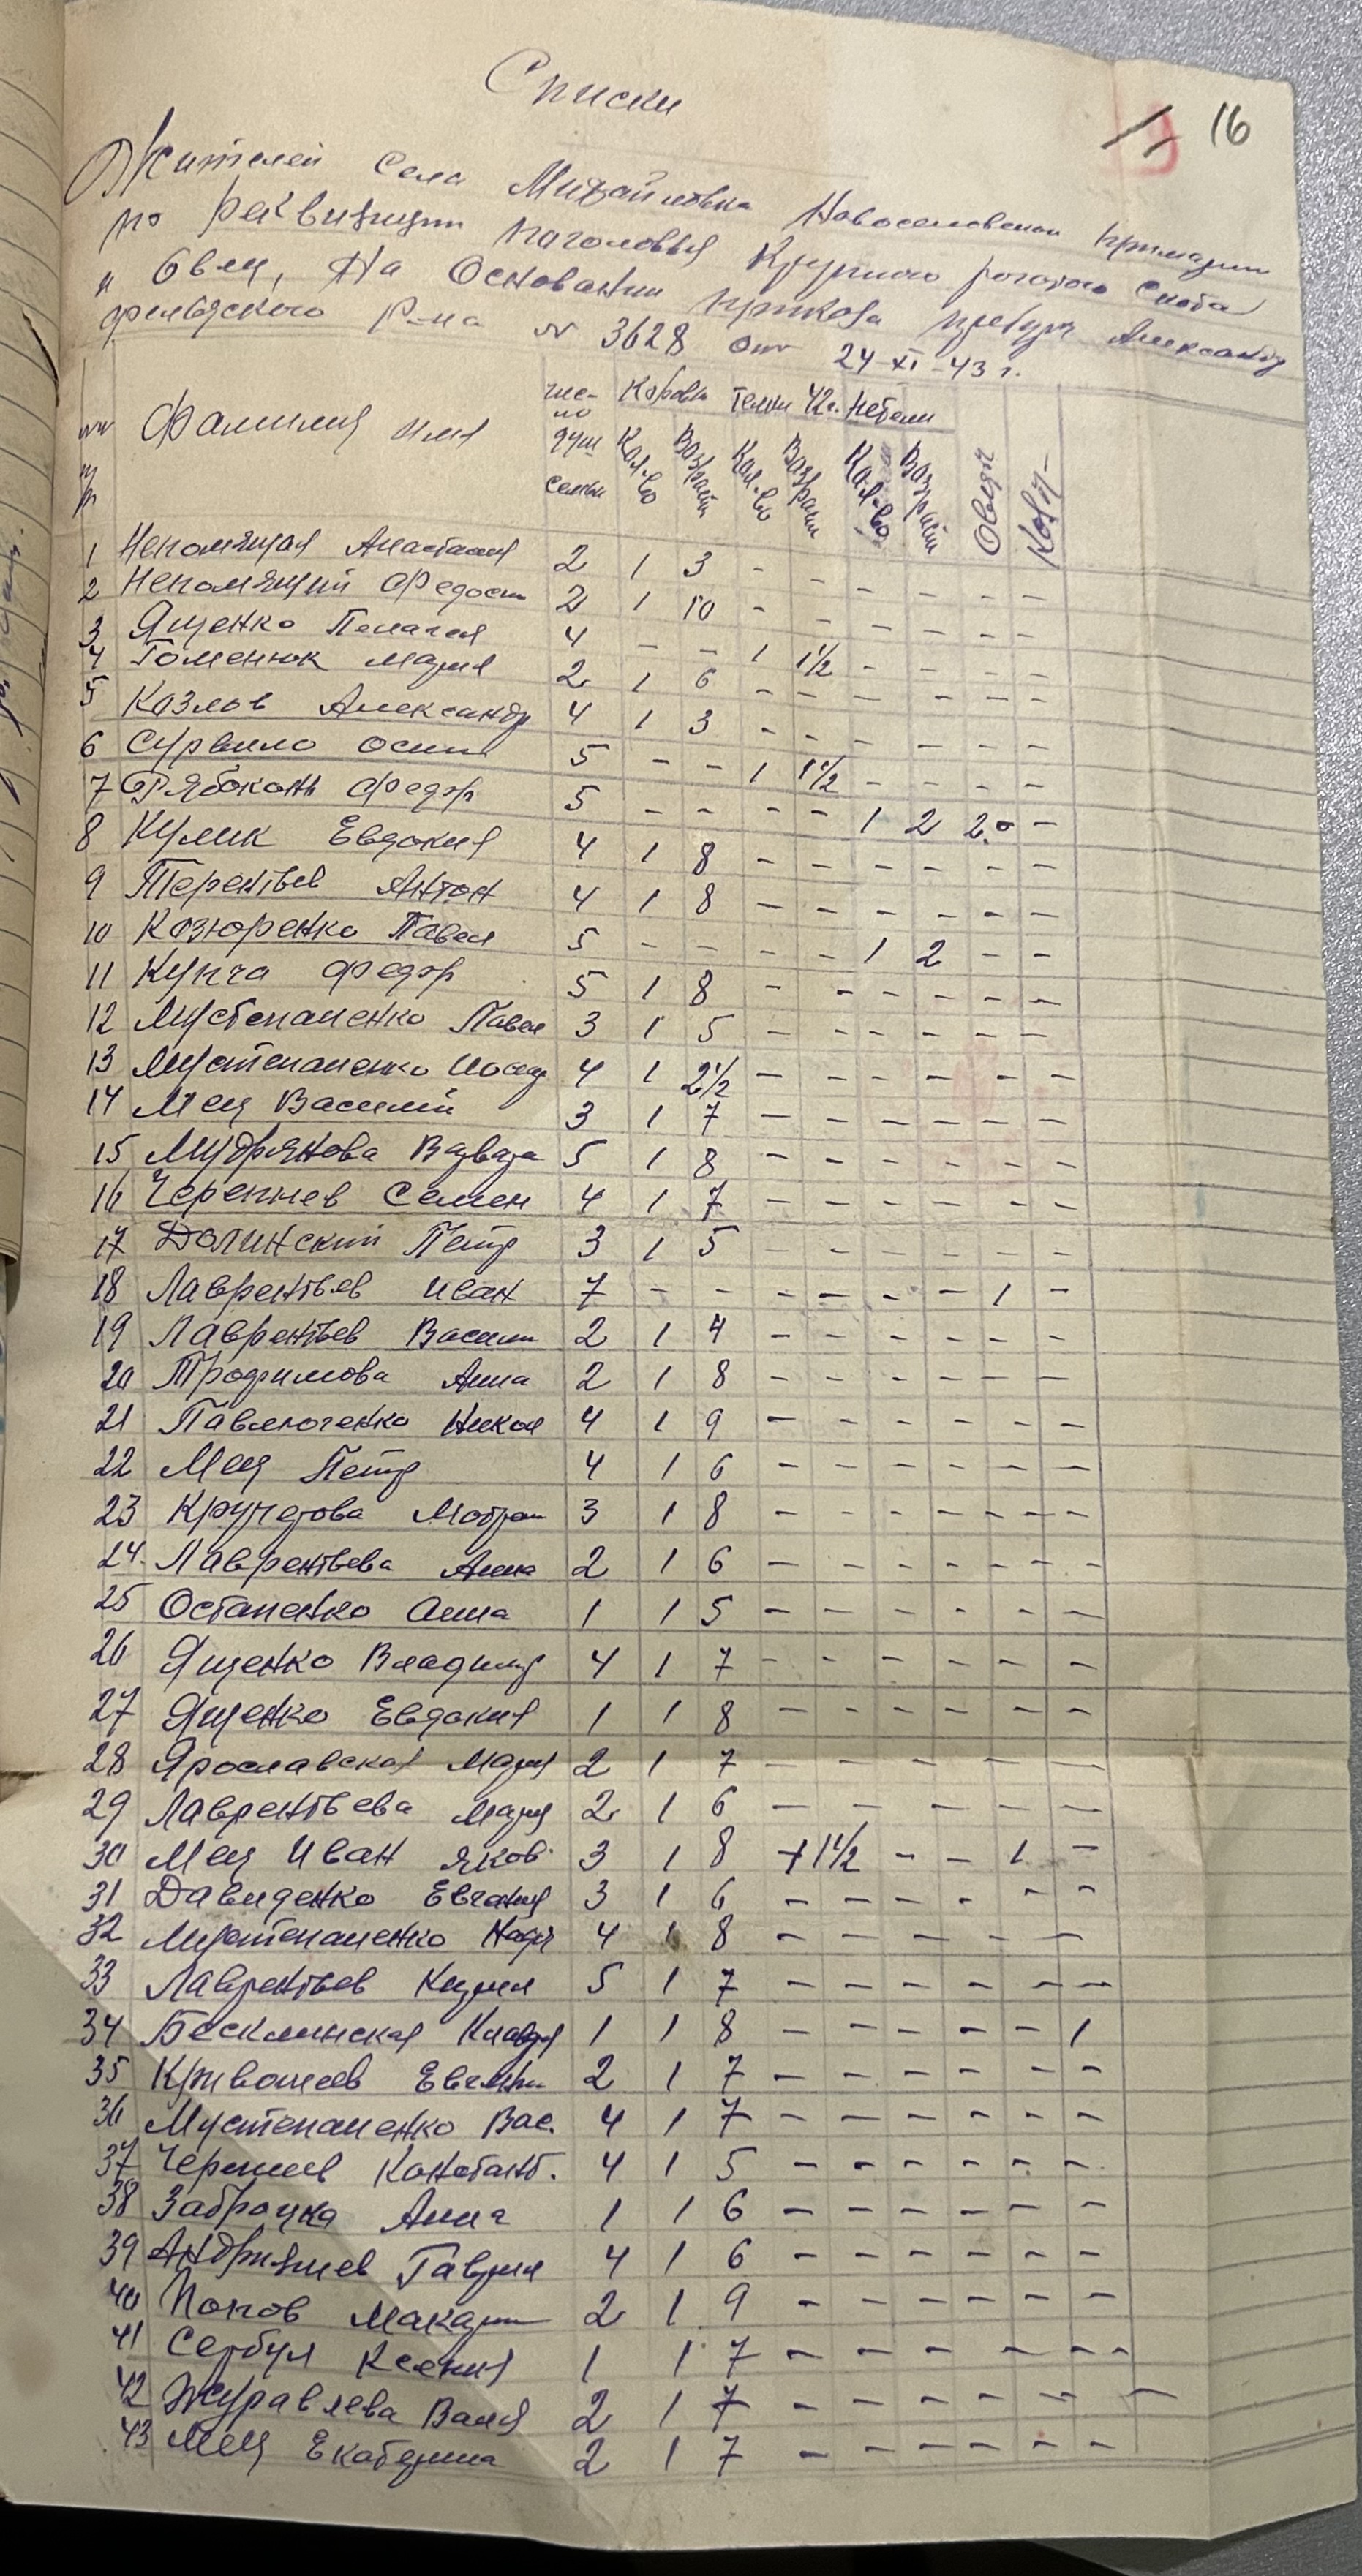 16
Списки
Жителей села Михайловка Новоселовской примарии
по реквизиции поголовья Крупного рогатого скота
и Овец, На Основании приказа претура Александр
фельдского р-на № 3628 от 24-XI-43 г.
Фамилия имя чис-ло душ семьи Коровы Телки 42г. Нетели Овцы Козы
Кол-во Возраст Кол-во Возраст Кол-во Возраст
1 Непомящая Анастасия 2 1 3 - - - - - -
2 Непомящий Федосий 2 1 10 - - - - - -
3 Ященко Пелагея 4 - - 1 1½ - - - -
4 Гоменюк Мария 2 1 6 - - - - - -
5 Казлов Александр 4 1 3 - - - - - -
6 Сурвило Осип 5 - - 1 1½ - - - -
7 Рябоконь Федор 5 - - - - 1 2 2 -
8 Кулик Евдокия 4 1 8 - - - - - -
9 Терентьев Антон 4 1 8 - - - - - -
10 Казюренко Павел 5 - - - - 1 2 - -
11 Купча Федор 5 1 8 - - - - - -
12 Мустепаненко Павел 3 1 5 - - - - - -
13 Мустепаненко 4 1 2½ - - - - - -
14 Мец Василий 3 1 7 - - - - - -
15 Мудрянова Варвара 5 1 8 - - - - - -
16 Черепнев Семен 4 1 7 - - - - - -
17 Долинский Петр 3 1 5 - - - - - -
18 Лаврентьев Иван 7 - - - - - - 1 -
19 Лаврентьев Васили 2 1 4 - - - - - -
20 Трофимова Анна 2 1 8 - - - - - -
21 Павлюченко Никол 4 1 9 - - - - - -
22 Мец Петр 4 1 6 - - - - - -
23 Матрон 3 1 8 - - - - - -
24. Лаврентьева Анна 2 1 6 - - - - - -
25 Остапенко Анна 1 1 5 - - - - - -
26 Ященко Владимир 4 1 7 - - - - - -
27 Ященко Евдокия 1 1 8 - - - - - -
28 Ярославская Мария 2 1 7 - - - - -
29 Лаврентьева Мария 2 1 6 - - - - -
30 Мец Иван Яков. 3 1 8 1 1½ - - 1 -
31 Давиденко Евгения 3 1 6 - - - - - -
32 Мустепаненко Надя 4 1 8 - - - - -
33 Лаврентьев Кирил 5 1 7 - - - - - -
34 Бесклинская Клавдия 1 1 8 - - - - - 1
35 Кривошеев Евгении 2 1 7 - - - - - -
36 Мустепаненко Вас. 4 1 7 - - - - - -
37 Константт. 4 1 5 - - - - - -
38 Заброцка Анна 1 1 6 - - - - - -
39 Андрияшев Гаврил 4 1 6 - - - - - -
40 Попов Макарии 2 1 9 - - - - - -
41 Сербул Ксения 1 1 7 - - - - - -
42 Журавлева Валя 2 1 7 - - - - - -
43 Мец Екатерина 2 1 7 - - - - - -